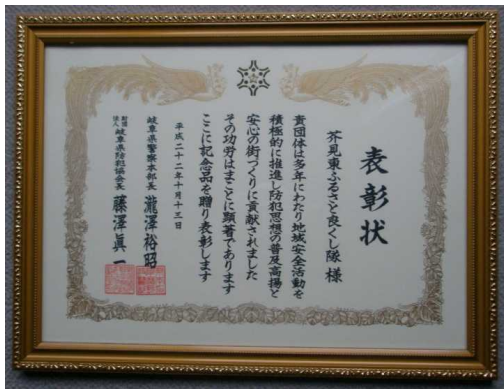 表彰状
芥見東ふるさと良くし隊 様
貴団体は多年にわたり地域安全活動を
積極的に推進し防犯思想の普及高揚と
安心の街づくりに貢献されました
その功労はまことに顕著であります
ここに記念品を贈り表彰します
平成二十二年十月十三日
岐阜県警察本部長 瀧澤裕昭
財団法人 岐阜県防犯協会長 藤澤眞一